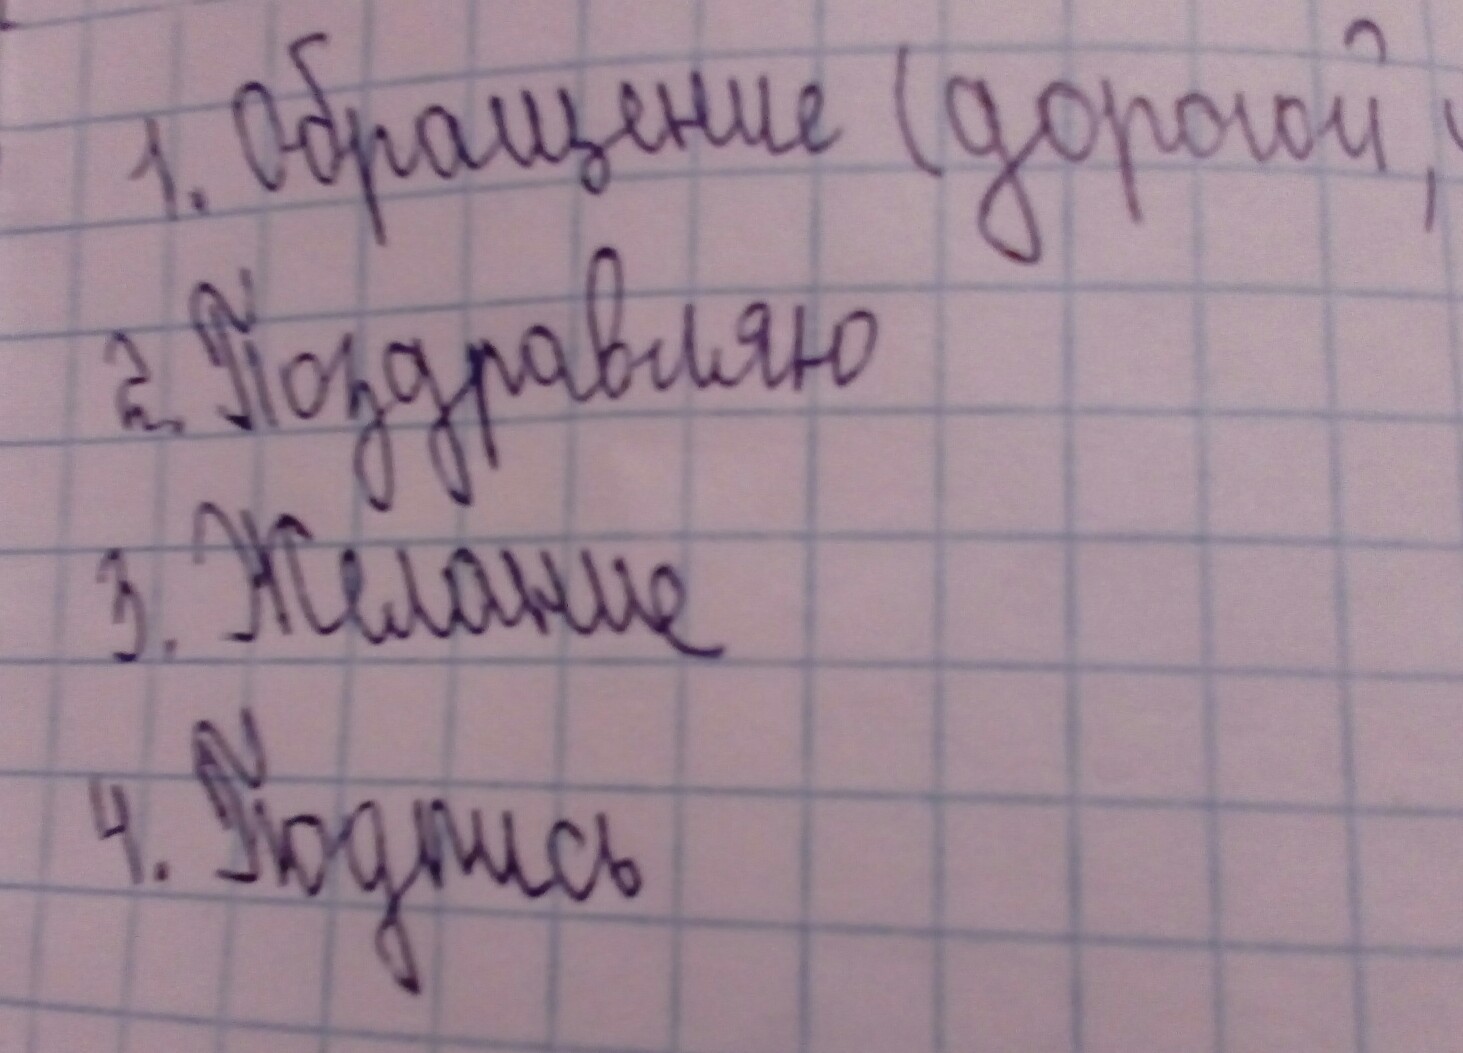 1. Обращение (дорогой,
2. Поздравляю
3. Желание
4. Подпись